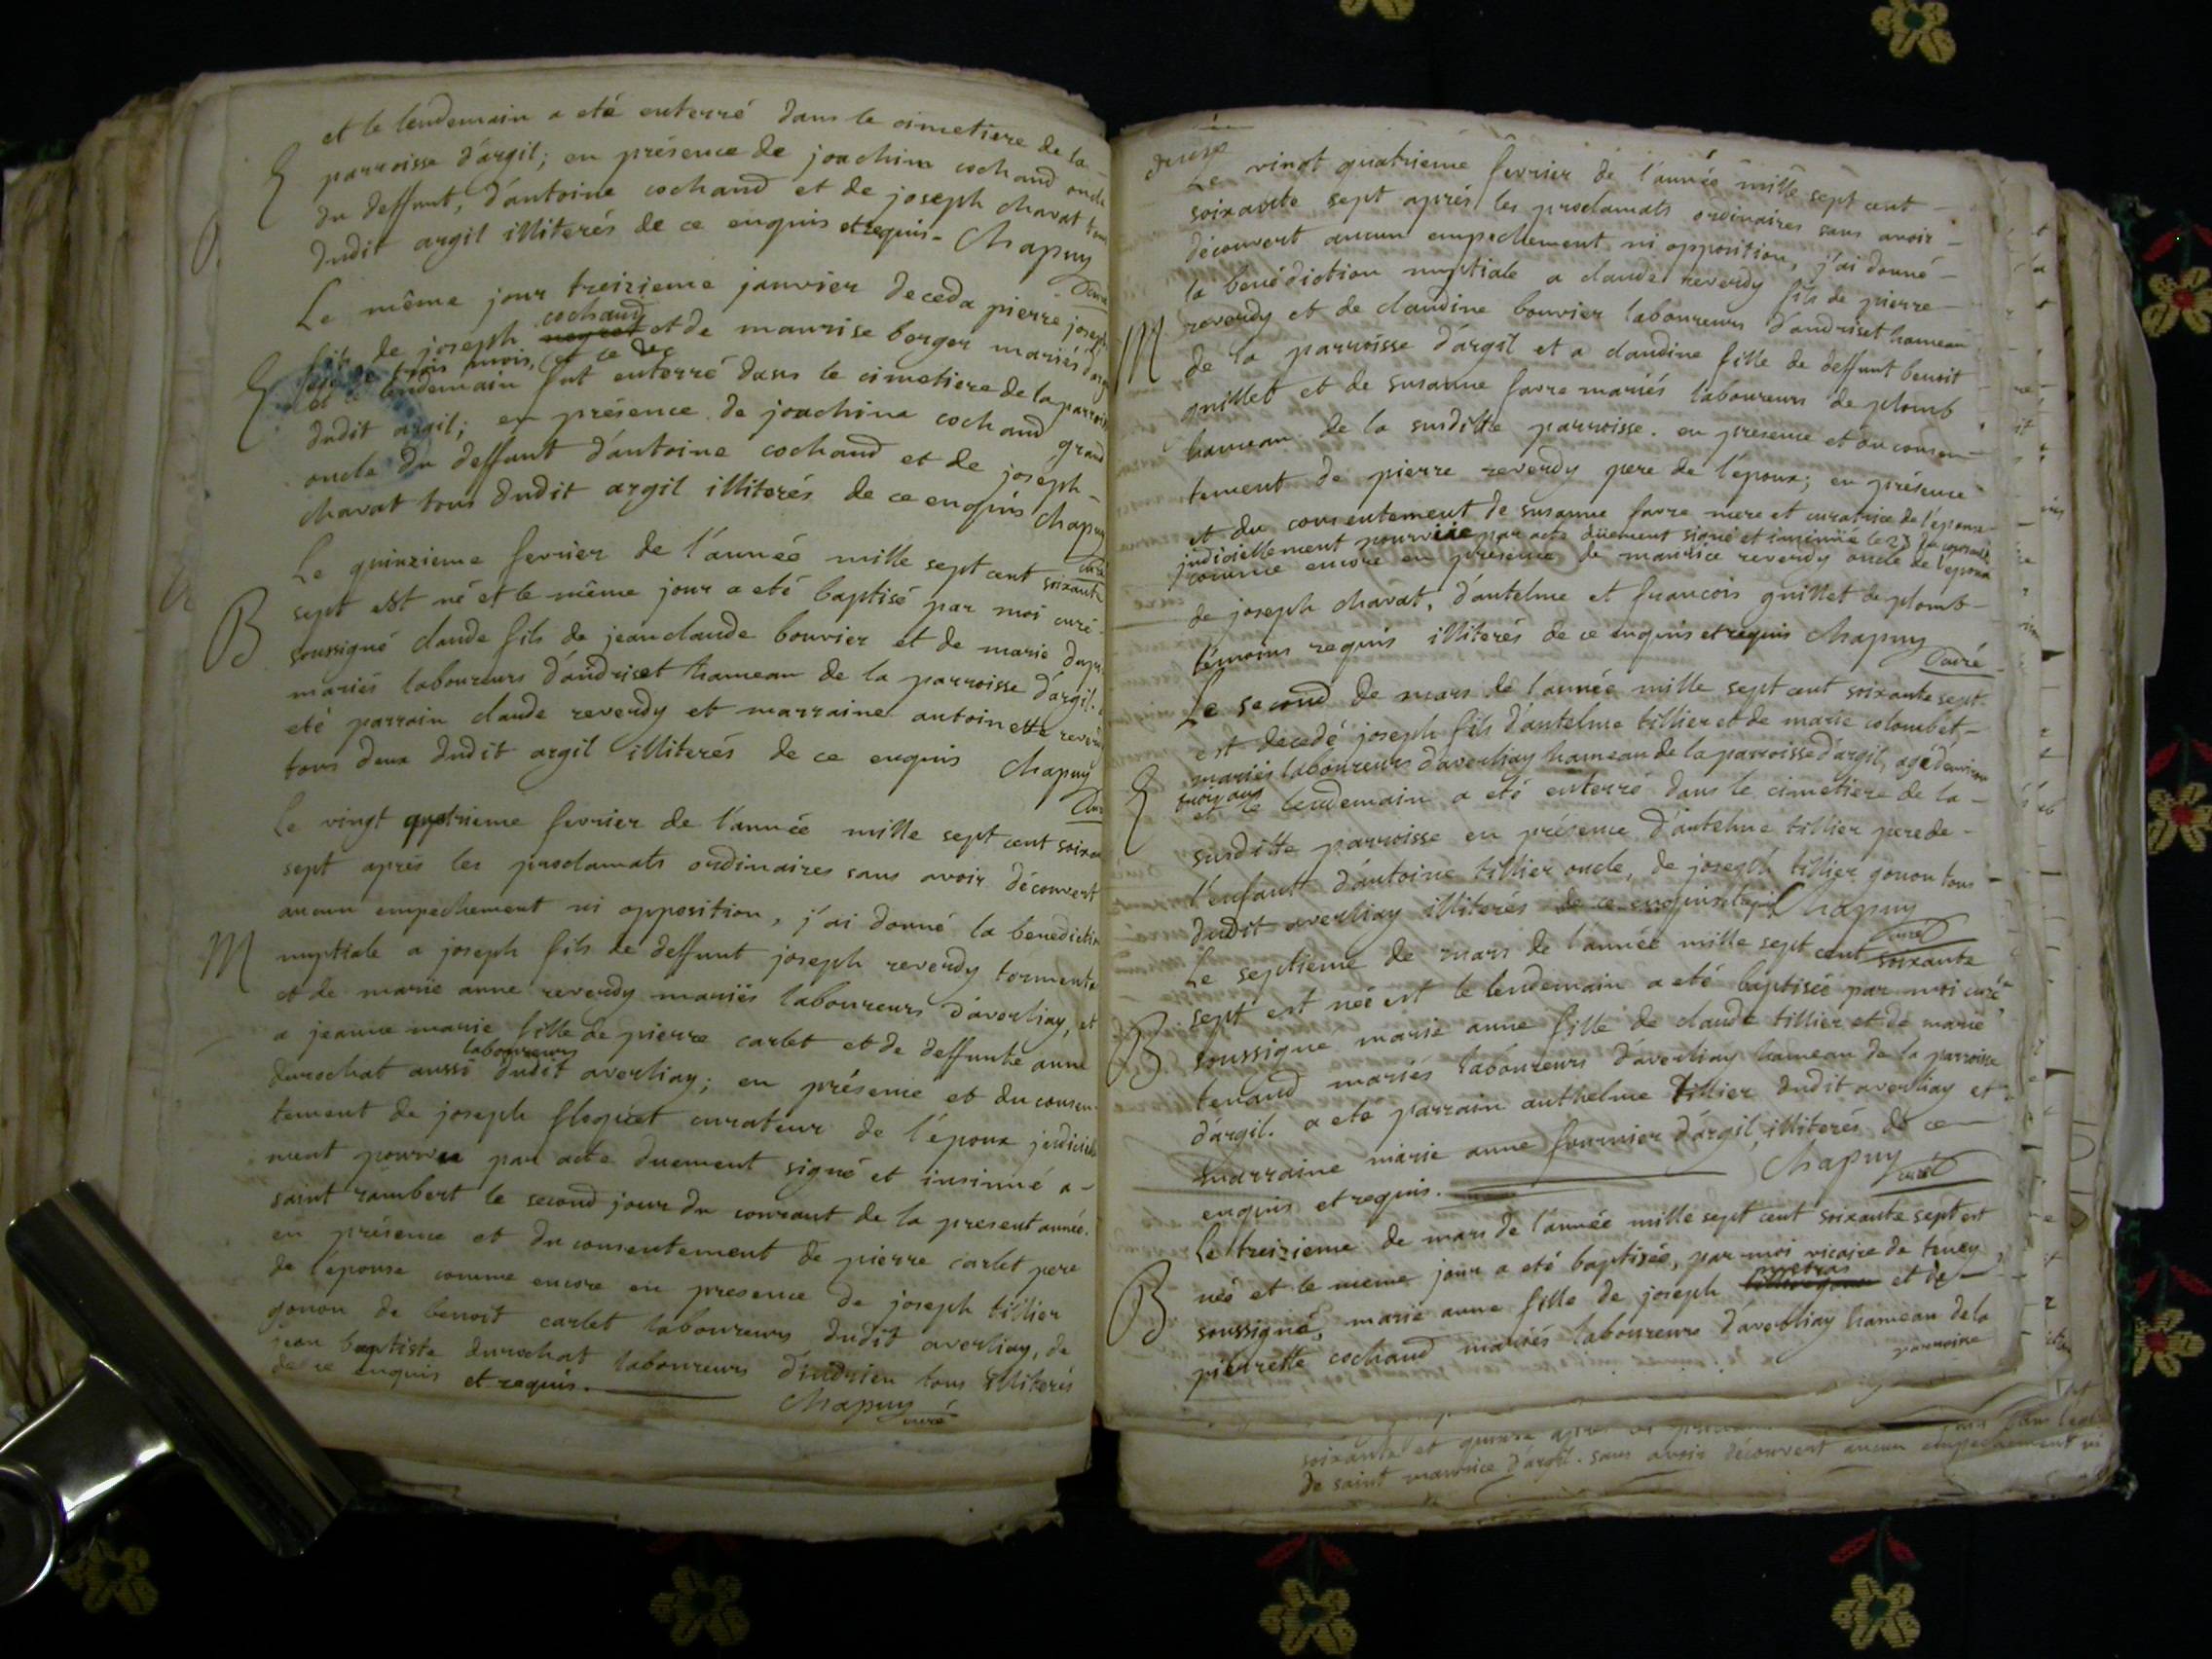 et le lendemain a eté enterré dans le cimetiere de la
E parroisse d'argil; en présence de joachim cochand oncle
du deffunt, d'antoine cochand et de joseph chavat tous
dudit argil illiterés de ce enquis et requis. Chapuy
Curé
Le même jour treizieme janvier deceda pierre joseph
cochand
fils de joseph et de maurise berger mariés d'argil
agé de trois mois, et ce
E et le lendemain fut enterré dans le cimetiere de la parroisse
dudit argil; en présence de joachim cochand grand
oncle du deffunt d'antoine cochand et de joseph
chavat tous dudit argil illiterés de ce enquis Chapuy
Curé
Le quinzieme fevrier de l'année mille sept cent soixante
sept est né et le même jour a eté baptisé par moi curé
B soussigné claude fils de jean claude bouvier et de marie
mariés laboureurs d'andriset hameau de la parroisse d'argil. a
eté parrain claude reverdy et marraine antoinette reverdy
tous deux dudit argil illiterés de ce enquis Chapuy
Curé
Le vingt quatrieme fevrier de l'année mille sept cent soixante
sept aprés les proclamats ordinaires sans avoir découvert
aucun empechement ni opposition, j'ai donné la benediction
M nuptiale a joseph fils de deffunt joseph reverdy
et de marie anne reverdy mariés laboureurs d'averliay, et
a jeanne marie fille de pierre carlet et de deffunte anne
laboureurs
durochat aussi dudit averliay; en présence et du consen-
tement de joseph curateur de l'époux judiciele
ment pourvu par acte duement signé et insinué a
saint rambert le second jour du courant de la present année.
en présence et du consentement de pierre carlet pere
de l'épouse comme encore en presence de joseph tillier
gonon de benoit carlet laboureurs dudit averliay, de
jean baptiste durochat laboureurs d'indrieu tous illiterés
de ce enquis et requis. Chapuy
curé
Le vingt quatrieme fevrier de l'année mille sept cent
soixante sept aprés les proclamats ordinaires sans avoir
découvert aucun empechement ni opposition, j'ai donné
la benédiction nuptiale a claude reverdy fils de pierre
M reverdy et de claudine bouvier laboureurs d'andriset hameau
de la parroisse d'argil et a claudine fille de deffunt benoit
guillet et de susanne favre mariés laboureurs de plomb
hameau de la susditte parroisse. en presence et du consen-
tement de pierre reverdy pere de l'époux; en présence
et du consentement de susanne favre mere et curatrice de l'épouse
judiciellement pourvüe par acte düement signé et insinüé le 23 du
comme encore en présence de maurice reverdy oncle de l'epoux
de joseph chavat, d'antelme et francois guillet de plomb
témoins requis illiterés de ce enquis et requis Chapuy
Curé
Le second de mars de l'année mille sept cent soixante sept
est decedé joseph fils d'antelme tillier et de marie colombet
mariés laboureurs d'averliay hameau de la parroisse d'argil, agé d'environ
trois ans
E et le lendemain a eté enterré dans le cimetiere de la
susditte parroisse en présence d'antelme tillier pere de
l'enfant d'antoine tillier oncle, de joseph tillier gonon tous
dudit averliay illiterés de ce enquis et requis Chapuy
curé
Le septieme de mars de l'année mille sept cent soixante
sept est née et le lendemain a eté baptisée par moi curé
B soussigné marie anne fille de claude tillier et de marie
tenand mariés laboureurs d'averliay hameau de la parroisse
d'argil. a eté parrain anthelme tillier dudit averliay et
marraine marie anne fournier d'argil, illiterés de ce
enquis et requis. Chapuy
curé
Le treizieme de mars de l'année mille sept cent soixante sept est
née et le meme jour a eté baptisée, par moi vicaire de tency
B soussigné, marie anne fille de joseph et de
pierrette cochand mariés laboureurs d'averliay hameau de la
parroisse
soixante et quinze
de saint maurice d'argil. sans avoir découvert aucun empechement ni